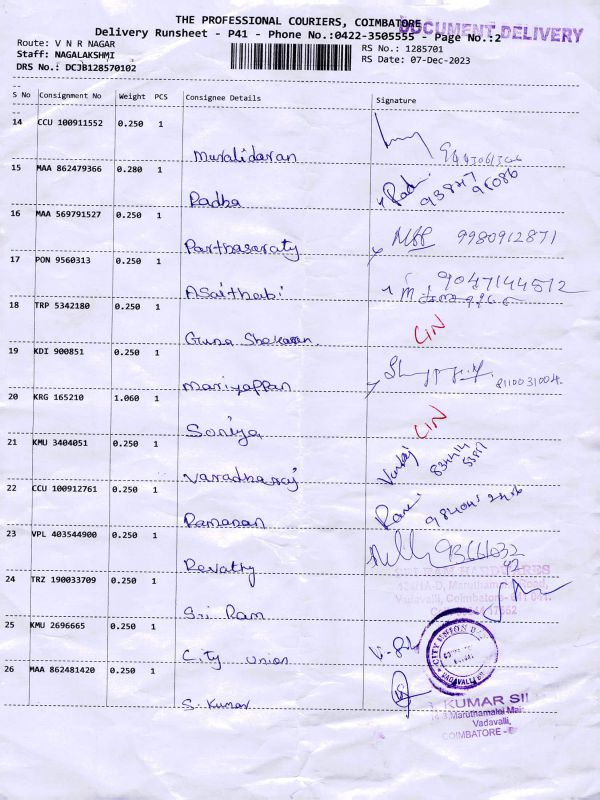 THE PROFESSIONAL COURIERS, COIMBATORE
DOCUMENT DELIVERY
Delivery Runsheet - P41 - Phone No.:0422-3505555 - Page No.:2
Route: V N R NAGAR
RS No.: 1285701
Staff: NAGALAKSHMI
RS Date: 07-Dec-2023
DRS No.: DCJB128570102
S No Consignment No Weight PCS Consignee Details Signature
14 CCU 100911552 0.250 1
Muralidaran
15 MAA 862479366 0.280 1
Radha
16 MAA 569791527 0.250 1
Parthasaraty 9980912871
17 PON 9560313 0.250 1
Asaithabi 9047144512
18 TRP 5342180 0.250 1
Guna Shekaran LIN
19 KDI 900851 0.250 1
Mariyappan 8110031004.
20 KRG 165210 1.060 1
Soniya LIN
21 KMU 3404051 0.250 1
Varadharaj
22 CCU 100912761 0.250 1
Ramanan
23 VPL 403544900 0.250 1
Revathy
24 TRZ 190033709 0.250 1
Sri Ram
25 KMU 2696665 0.250 1
City Union
CITY UNION
VADAVALLI
26 MAA 862481420 0.250 1
S. Kumar
KUMAR
Maruthamalai
Vadavalli,
COIMBATORE